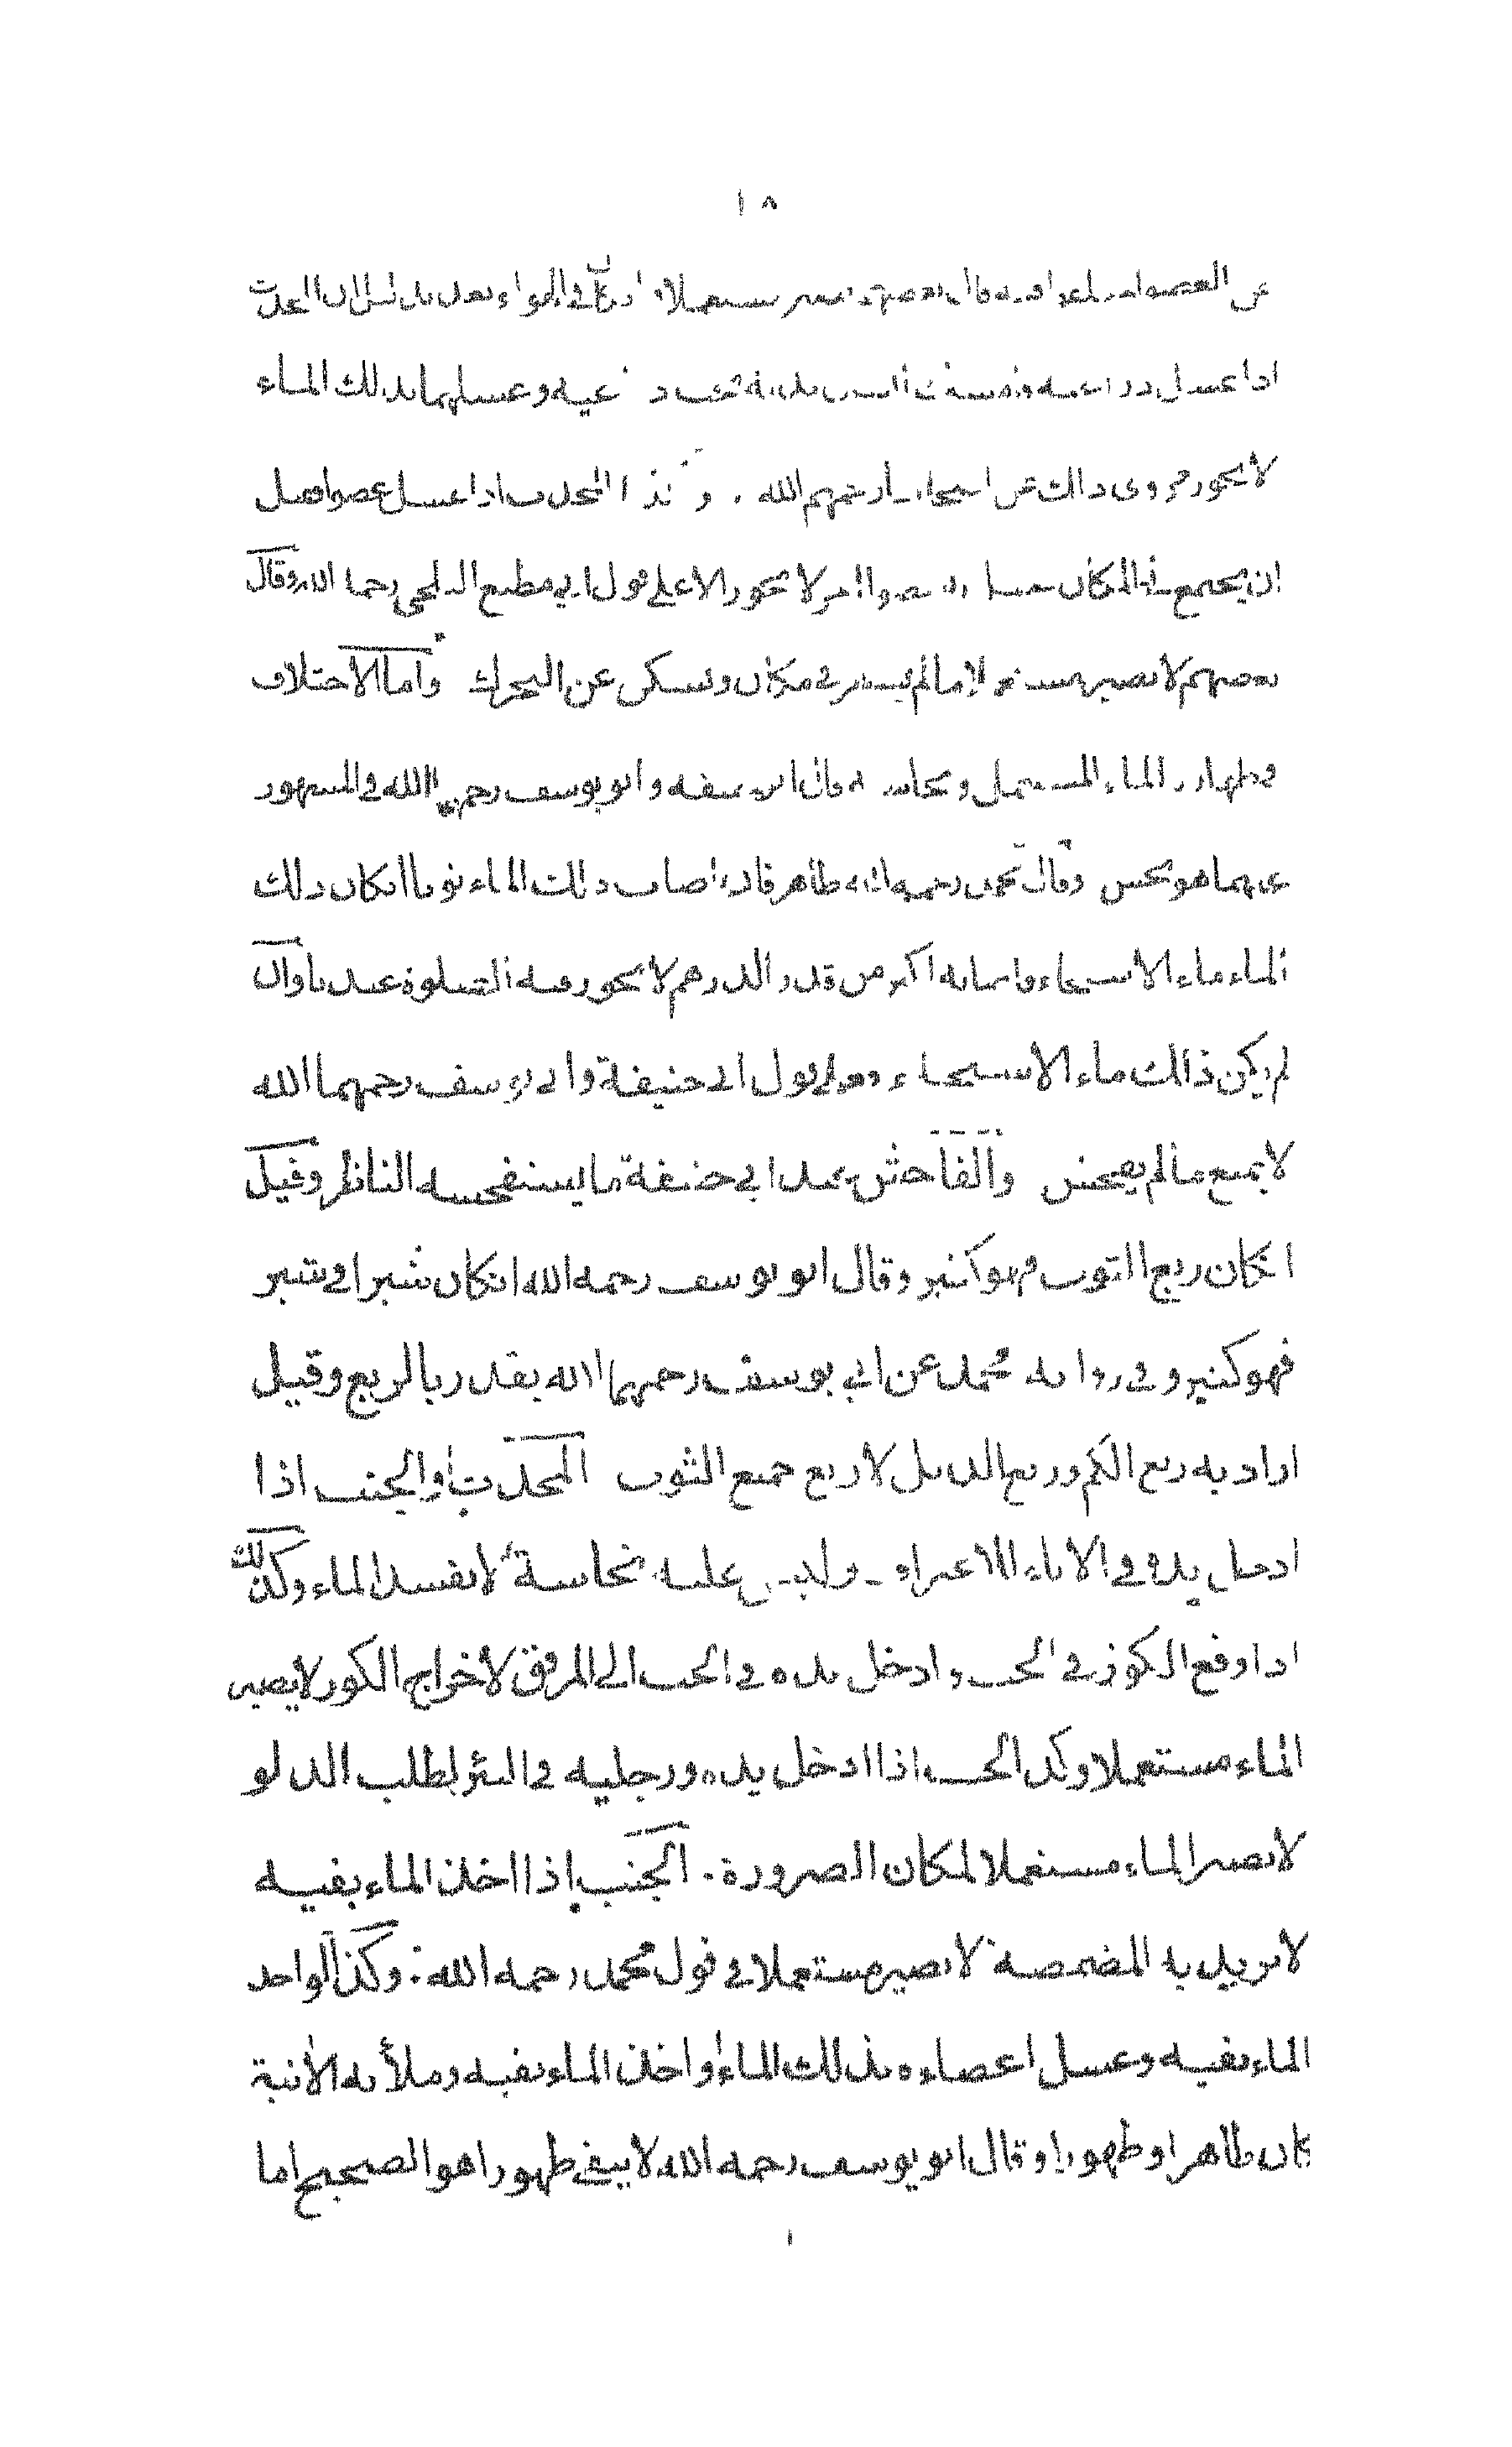 ١٨
عن العضو قال بعضهم يصير مستعملا وان كان في الهواء بعد بدليل ان المحدث
اذا غسل ذراعيه ذراعيه وغسلهما بذلك الماء
لا يجوز روى ذلك عن اصحابنا رحمهم الله . وكذا المحدث اذا غسل عضوا وقبل
ان يجتمع في المكان لا يجوز الا على قول ابي مطيع البلخي رحمه الله وقال
بعضهم لا يصير مستعملا ما لم يستقر في مكان ويسكن عن التحرك واما الاختلاف
في طهارة الماء المستعمل ونجاسته قال ابو حنيفة وابو يوسف رحمهما الله في المشهور
عنهما هو نجس وقال محمد رحمه الله طاهر فان اصاب ذلك الماء ثوبا انكان ذلك
الماء ماء الاستنجاء واصابه اكثر من قدر الدرهم لا يجوز فيه الصلوة عندنا وان
لم يكن ذلك ماء الاستنجاء فعلى قول ابي حنيفة وابي يوسف رحمهما الله
لا يمنع ما لم يفحش والفاحش عند ابي حنيفة ما يستفحشه الناظر وقيل
انكان ربع الثوب فهو كثير وقال ابو يوسف رحمه الله انكان شبرا في شبر
فهو كثير وفي رواية محمد عن ابي يوسف رحمهما الله يقدر بالربع وقيل
اراد به ربع الكم وربع الذيل لا ربع جميع الثوب المحدث او الجنب اذا
ادخل يده في الاناء للاغتراف وليس عليه نجاسة لا يفسد الماء وكذلك
اذا وقع الكوز في الحب وادخل يده في الحب الى المرفق لاخراج الكوز لا يصير
الماء مستعملا وكذا الجنب اذا ادخل يده ورجليه في البئر لطلب الدلو
لا يصير الماء مستعملا لمكان الضرورة . الجنب اذا اخذ الماء بفيه
لا يريد به المضمضة لا يصير مستعملا في قول محمد رحمه الله . وكذا لو اخذ
الماء بفيه وغسل اعضاءه بذلك الماء او اخذ الماء بفيه وملأ به الآنية
كان طاهرا وطهورا وقال ابو يوسف رحمه الله لا يبقى طهورا هو الصحيح اما